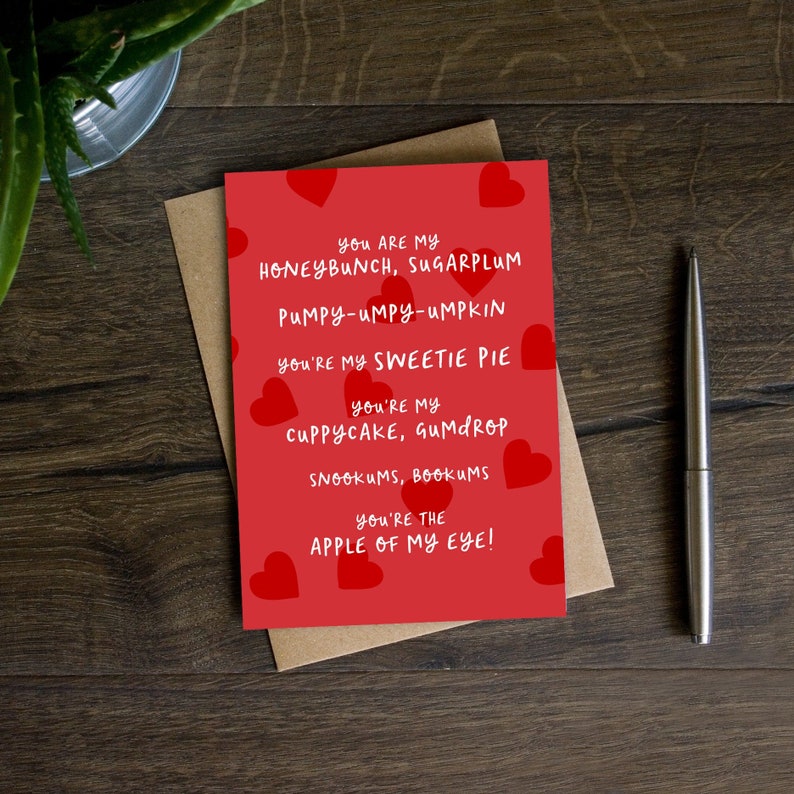 you ARE my
HONEYBUNCH, SUGARPLUM
PUMPY-UMPY-UMPKIN
you'RE my SWEETIE PIE
you'RE my
CUPPYCAKE, GUMdROP
SNOOKUMS, BOOKUMS
you'RE THE
APPLE OF MY EYE!